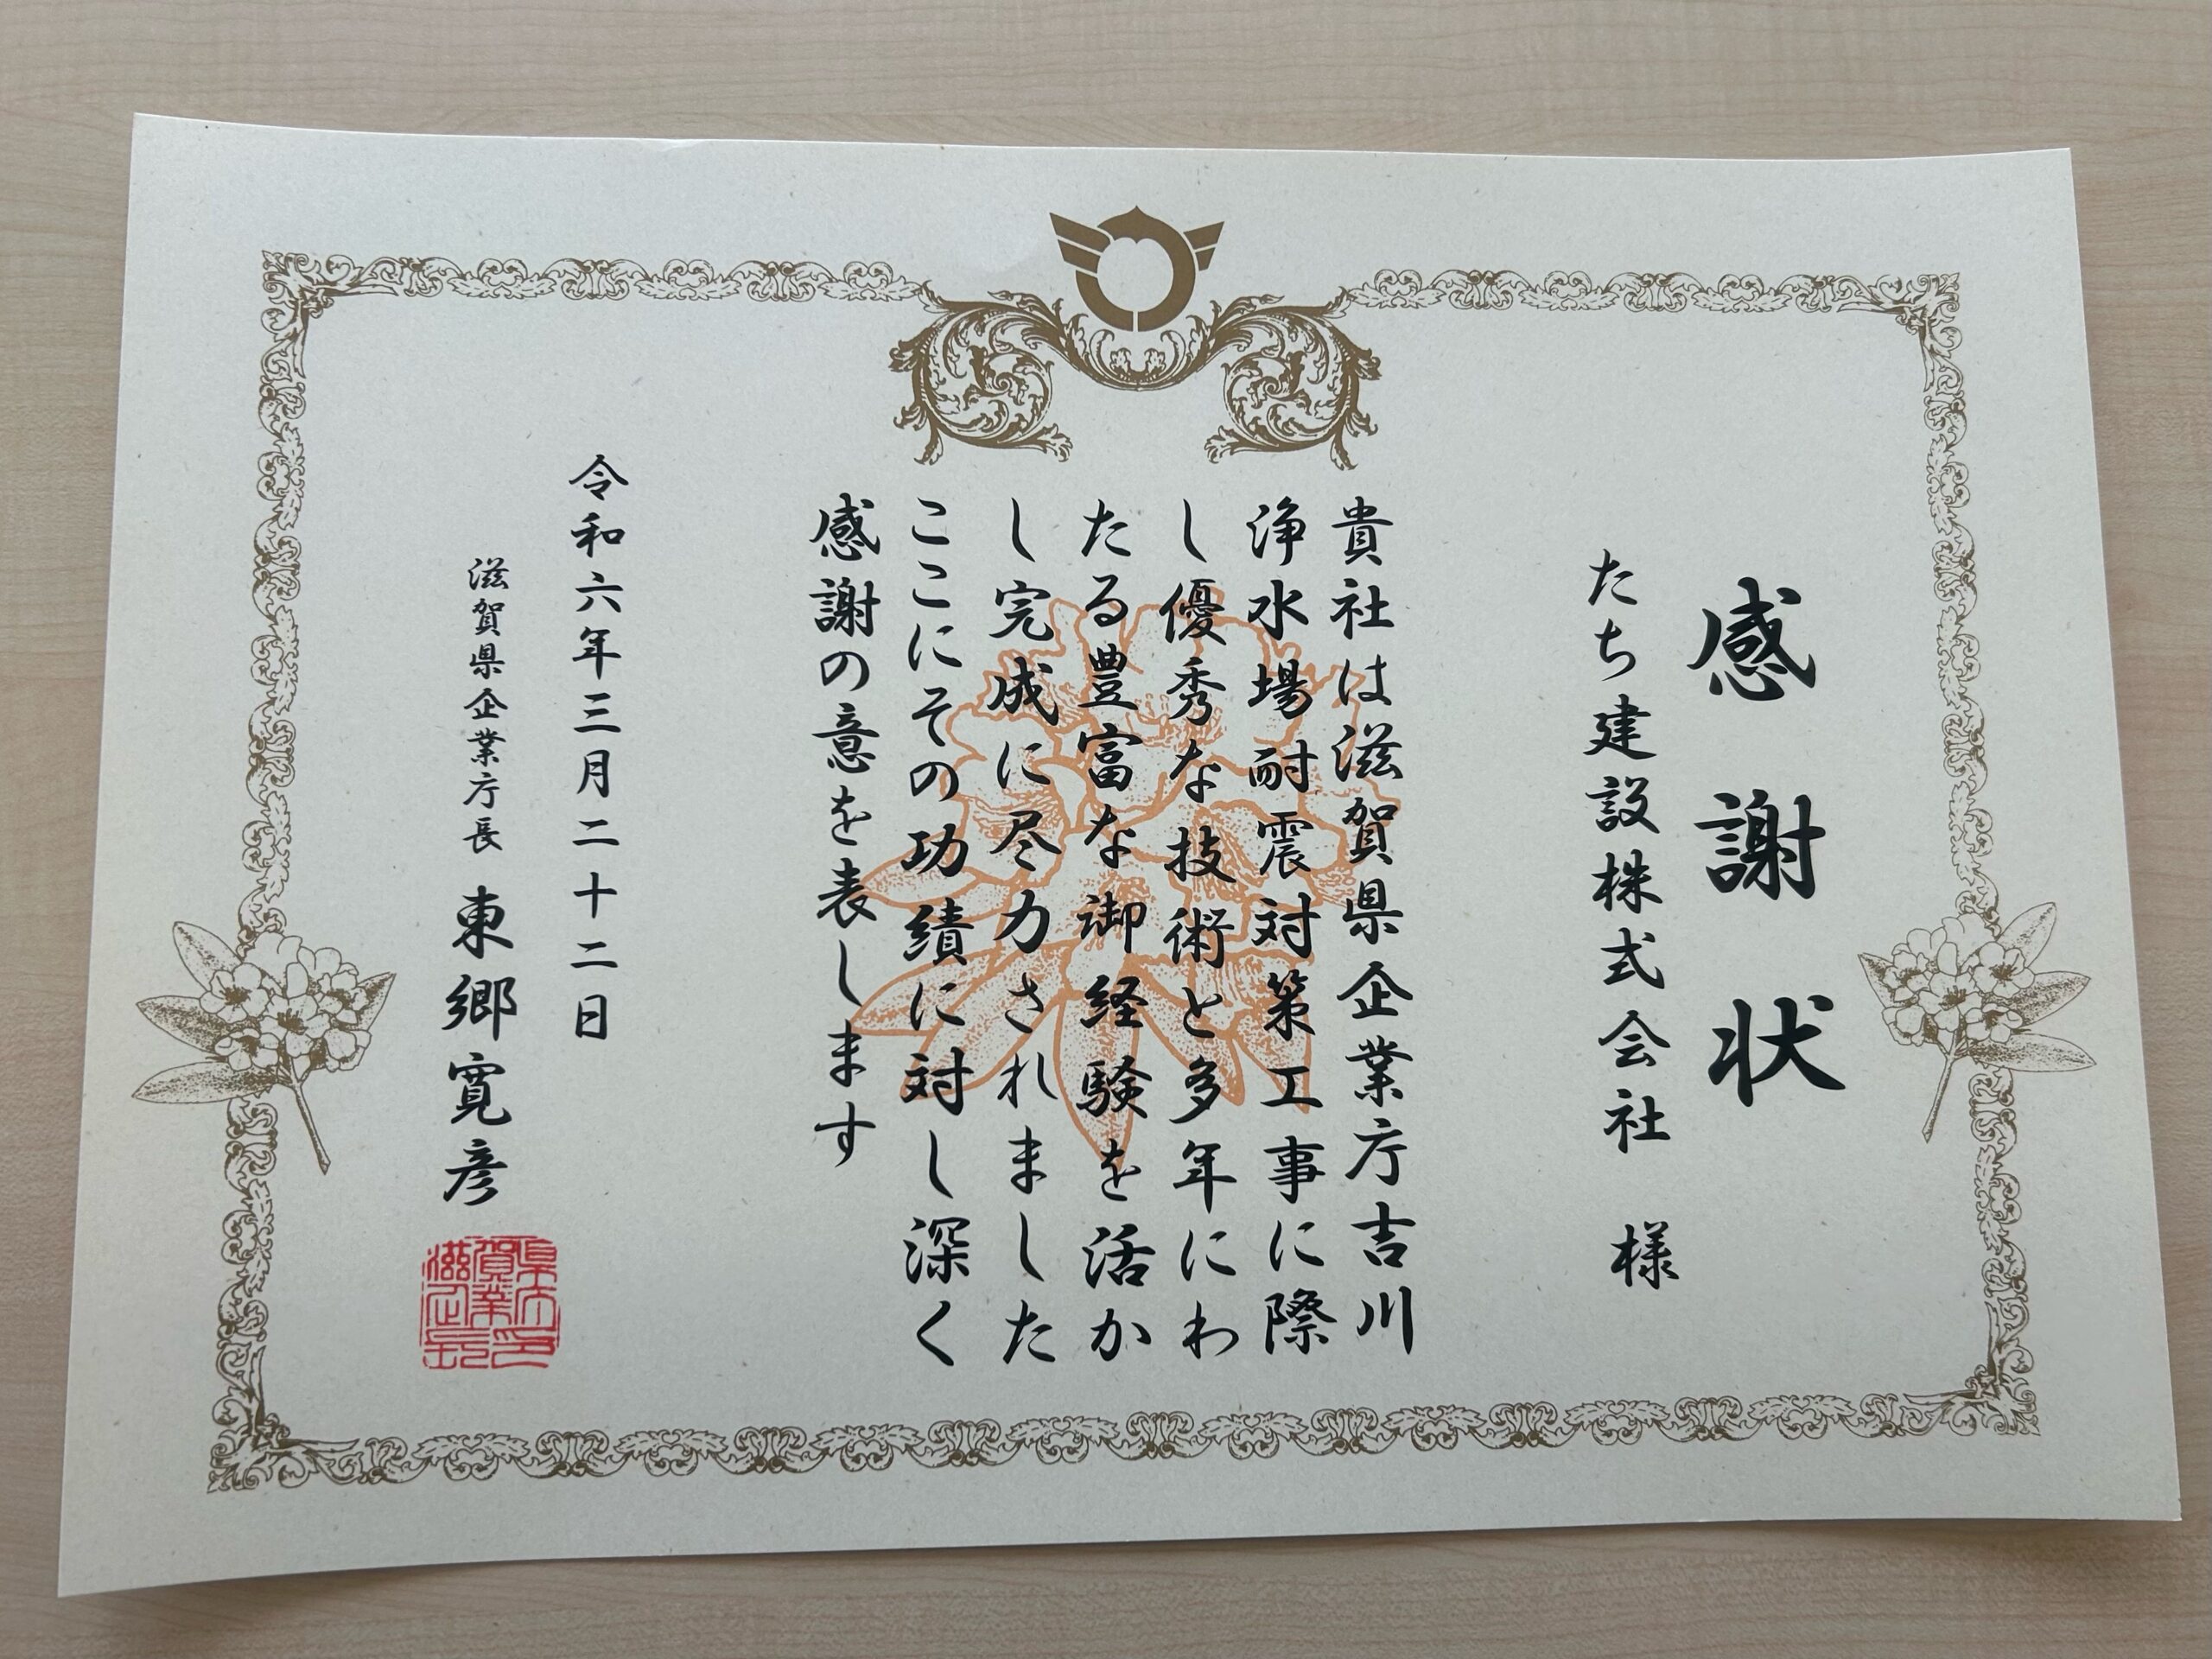 感謝状
たち建設株式会社 様
貴社は滋賀県企業庁吉川
浄水場耐震対策工事に際
し優秀な技術と多年にわ
たる豊富な御経験を活か
し完成に尽力されました
ここにその功績に対し深く
感謝の意を表します
令和六年三月二十二日
滋賀県企業庁長 東郷寛彦